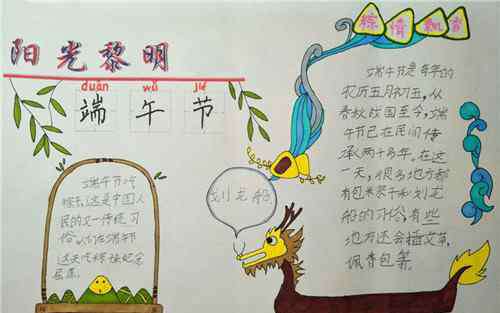 阳光黎明
duān wǔ jié
端午节
端午节吃
粽子,这是中国人
民的又一传统习
俗,人们在端午节
这天吃粽子纪念
屈原。
划龙船
粽情飘香
端午节是每年的
农历五月初五,从
春秋战国至今,端
午节已在民间传
承两千多年。在这
一天,很多地方都
有包米茶干和划龙
船的习俗,有些
地方还会插艾草,
佩香包等。